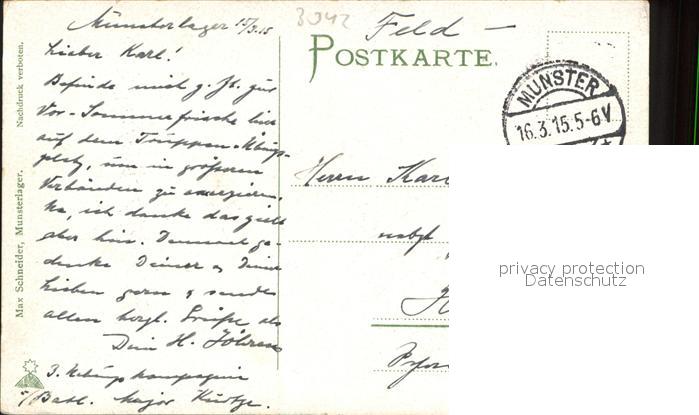 Munsterlager 15/3.15
Lieber Karl!
Befinde mich z. Zt. zur
Vor-Sommerfrische hier
auf dem Truppen-Übungs-
platz, um in größeren
Verbänden zu exerzieren.
Na, ich danke das geht
aber hin. Dennoch ge-
denke Deiner u. Deiner
Lieben gern u. sende
allen herzl. Grüße als
Dein H.
3. Übungskompagnie
Batl. Major
Max Schneider, Munsterlager.
Nachdruck verboten.
3042
Feld -
POSTKARTE.
MUNSTER
16.3.15.5-6V
Herrn
privacy protection
Datenschutz